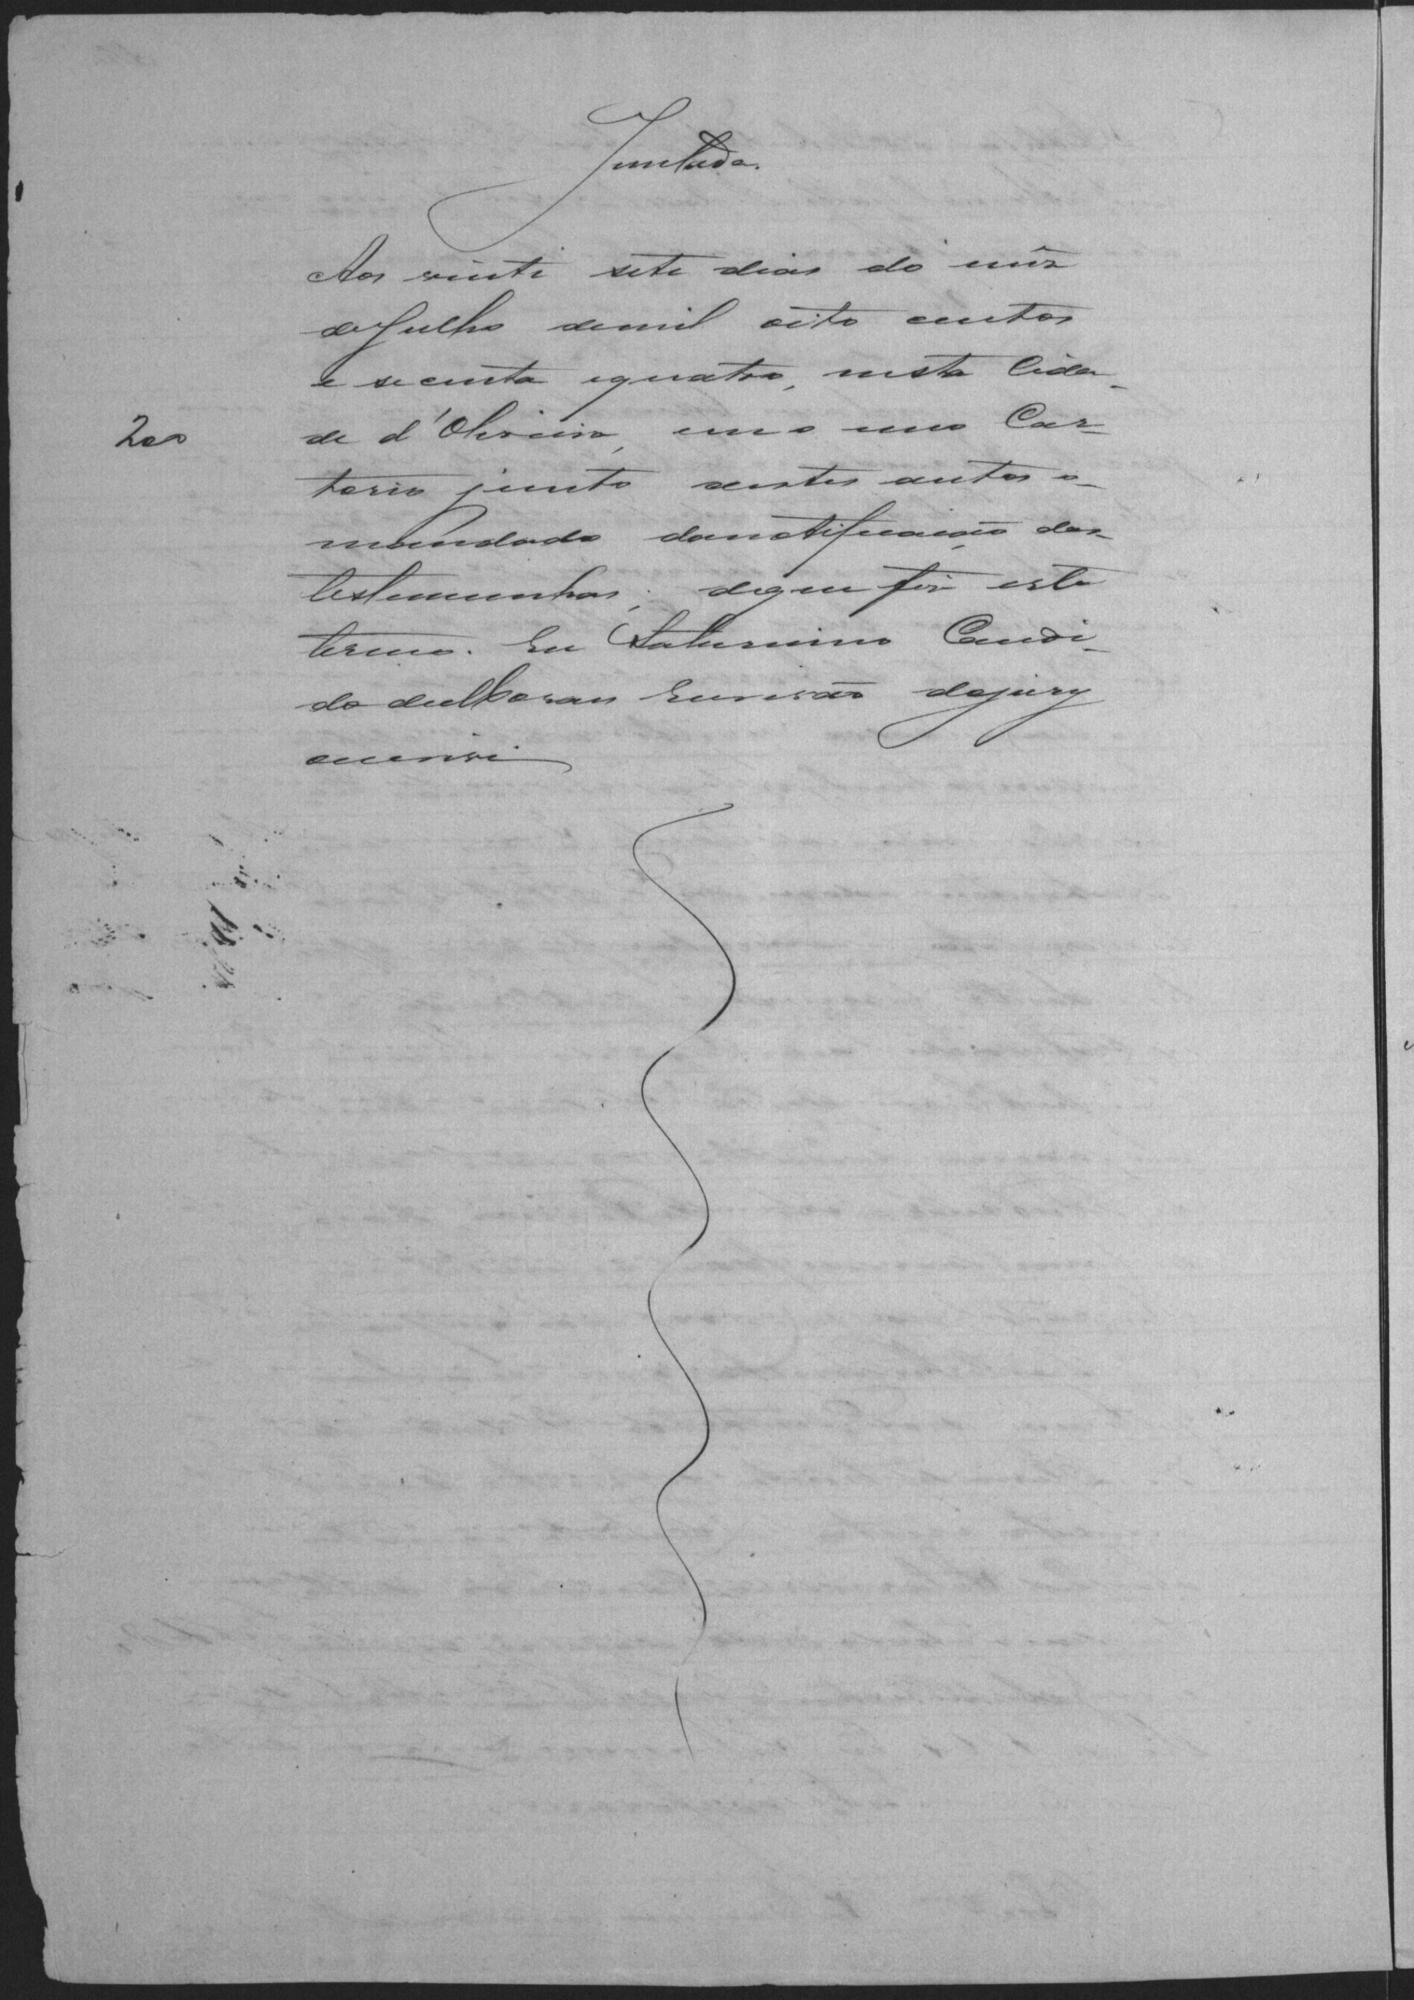 Juntada.
Aos vinte sete dias do mês
de Julho de mil oito centos
e secenta e quatro, nesta Cida-
200
de d'Oliveira, em o meo Car-
torio junto a estes autos o
mandado da notificação das
testemunhas; de que fis este
termo. Eu Saturnino Candi-
do Escrivão do jury
escrivi